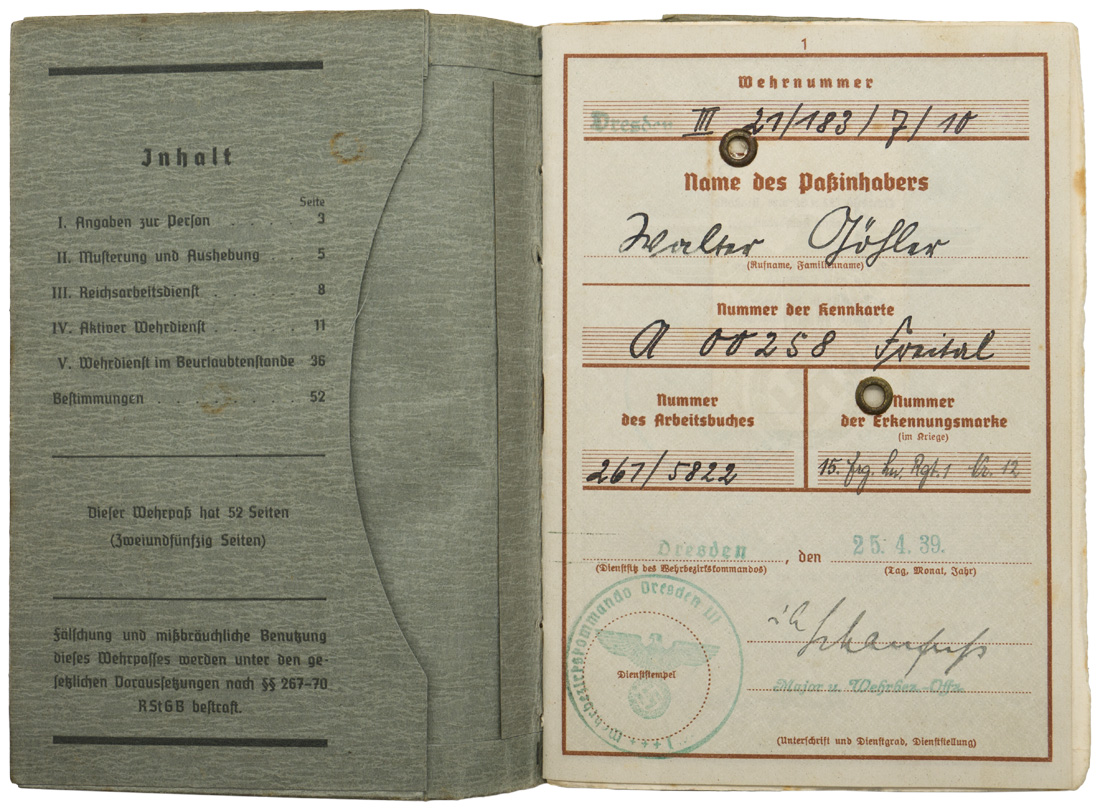 Inhalt
Seite
I. Angaben zur Person . . . . 3
II. Musterung und Aushebung . . 5
III. Reichsarbeitsdienst . . . . . . 8
IV. Aktiver Wehrdienst . . . . . . 11
V. Wehrdienst im Beurlaubtenstande 36
Bestimmungen . . . . . . . . . 52
Dieser Wehrpaß hat 52 Seiten
(Zweiundfünfzig Seiten)
Fälschung und mißbräuchliche Benutzung
dieses Wehrpasses werden unter den ge-
setzlichen Voraussetzungen nach §§ 267-70
RStGB bestraft.
1
Wehrnummer
Dresden III 21/183/7/10
Name des Paßinhabers
Walter Göhler
(Rufname, Familienname)
Nummer der Kennkarte
A 00258 Freital
Nummer
des Arbeitsbuches
267/5822
Nummer
der Erkennungsmarke
(im Kriege)
15. Erg. Ln. Rgt. 1 Nr. 12
Dresden, den 25. 4. 39.
(Dienstsitz des Wehrbezirkskommandos) (Tag, Monat, Jahr)
Wehrbezirkskommando Dresden III
Dienststempel
Major u. Wehrbez.-Offz.
(Unterschrift und Dienstgrad, Dienststellung)